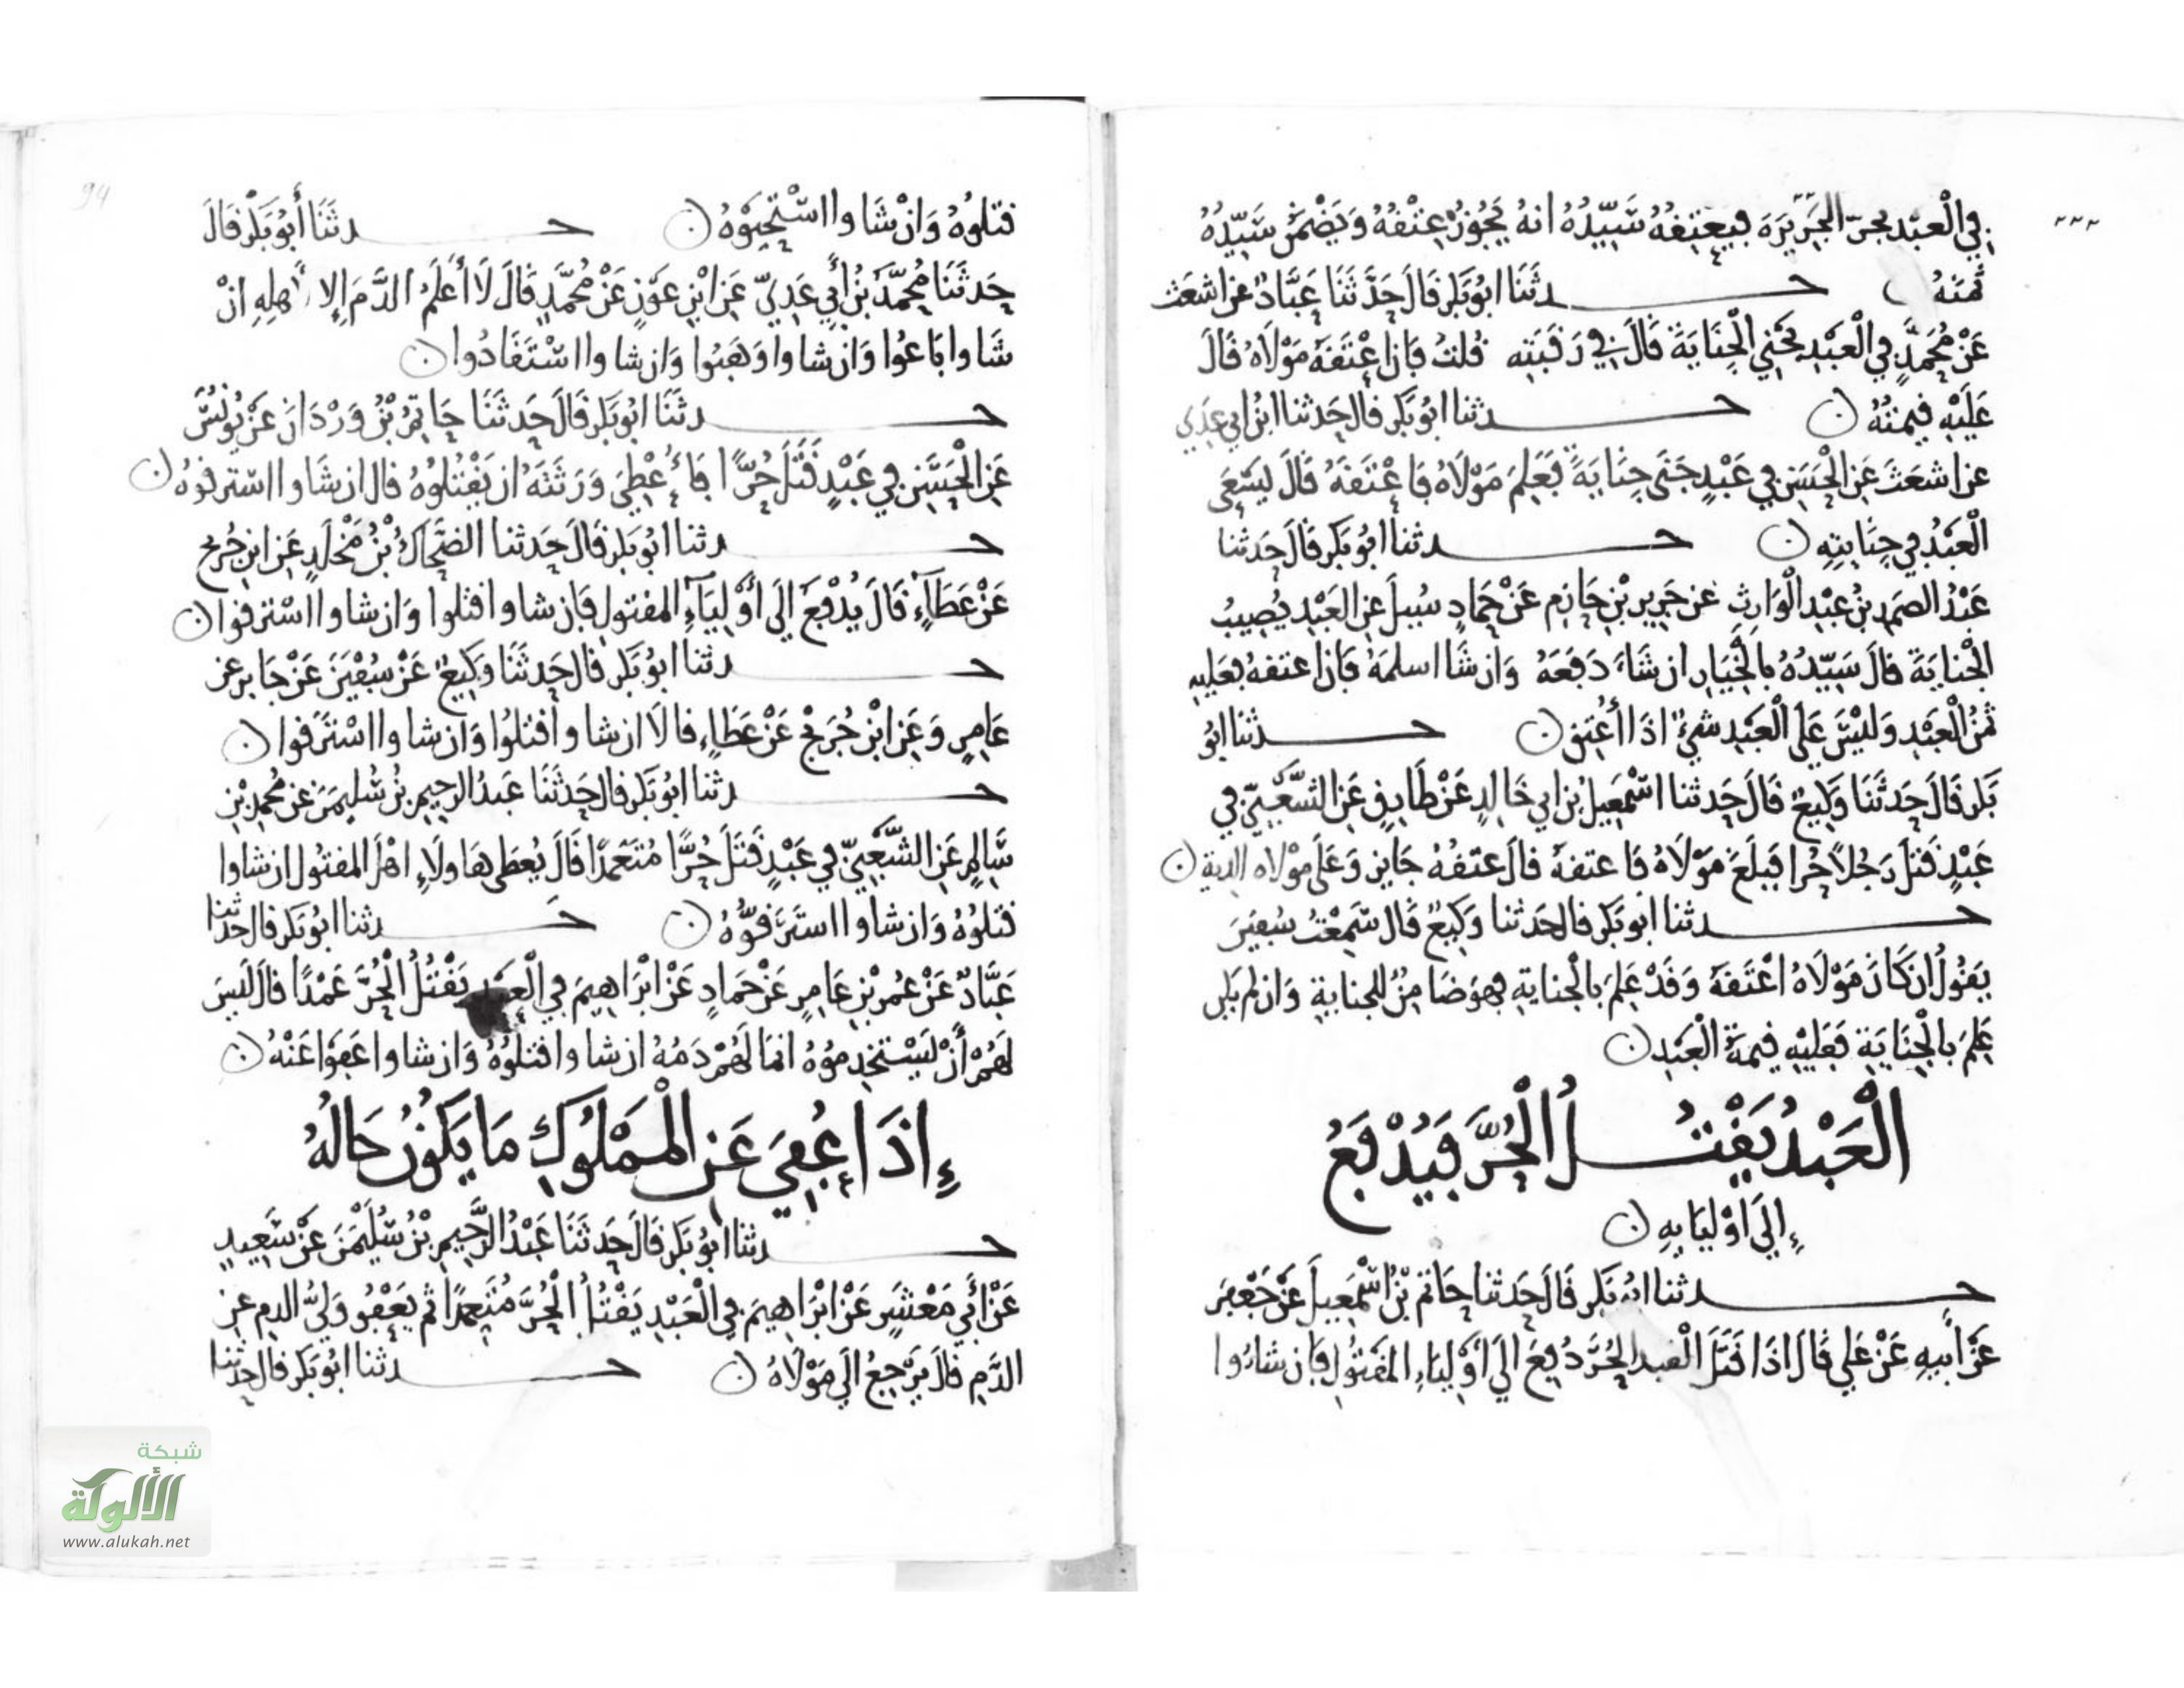 في الْعبْد يجرّ الجَرِّيَرَة فيعتِقهُ سَيِّدُهُ انهُ يَجُوزُ عِتْقهُ وَيَضْمَنُ سَيّدُهُ
ثمَنهُ حدثَنَا ابُو بَكر قَالَ حَدَّثَنَا عَبَّادٌ عن اشعَث
عَنْ مُحَمَّدٍ في الْعَبْدِ يَجْني الْجِنَايَةَ قَالَ في رَقَبَتِه قُلتُ فَان اعْتَقَهُ مَوْلَاهُ قَالَ
عَلَيْهِ قيمتُهُ حدثنا ابُو بَكر قال حَدثنا ابنُ ابي عَدِي
عن اشعَثَ عَنِ الْحَسَنِ في عَبْدٍ جَنَى جِنَايَةً فَعَلِمَ مَوْلَاهُ فَاعْتَقَهُ قَالَ يَسْعَى
الْعَبْدُ في جِنَايتِهِ حدثنا ابُو بَكر قَالَ حَدثنا
عَبْدُ الصمَدِ بنُ عبْدِ الْوَارِثِ عَن جَرِير بْنِ حَازِم عَنْ حَمادٍ سُيلَ عن العَبْدِ يُصِيبُ
الْجنايَةَ قالَ سَيّدُهُ بالْخَيَار ان شَاءَ دَفعَهُ وَان شَا اسلمَهُ فَان اعتقهُ فعَليهِ
ثمَنُ الْعَبْدِ وَليْسَ عَلى الْعَبدِ شيءٌ اذَا أُعْتِق حدثنا ابُو
بَكر قَالَ حَدثَنَا وَكِيعٌ قَالَ حَدثنا اسْمعِيلُ بْن ابي خَالِدٍ عَنْ طَارِقٍ عَن الشَّعْبِيّ في
عَبْدٍ قَتلَ رَجُلًا حُرا فبَلَغَ مَوْلَاهُ فَاعتقهُ قالَ عتقهُ جَايِز وَعَلى مَوْلاه الدية
حدثنا ابُو بَكر قال حَدثنا وَكِيعٌ قَال سَمِعْتُ سُفينَ
يَقُولُ ان كَانَ مَوْلَاهُ اعْتَقهُ وَقدْ عَلِمَ بالْجنايةِ فهوَ ضَامِنٌ للجنايةِ وَان لم يكن
عَلِمَ بالْجِنَايَةِ فَعَليْهِ قيمَةُ الْعَبدِ
الْعَبْدُ يَقْتُلُ الْحُرَّ فَيُدْفَعُ
إِلَى اوْليَايهِ
حدثنا ابُو بَكر قَالَ حَدثنا حَاتمُ بْنُ اسْمعِيلَ عَنْ جَعْفَر
عَنْ ابِيهِ عَنْ عَلي قَالَ اذَا قتَلَ الْعبد الحُرَّ دُفِعَ الَى أوْليَاءِ المقتُولِ فان شَاءُوا
قتلوُهُ وَانْ شَاوا اسْتحْيَوْهُ حدثَنَا أَبُو بَكْر قالَ
حَدثَنَا مُحَمَّدُ بْنُ أبي عَدِيّ عَن ابْنِ عَوْنٍ عَنْ مُحَمَّدٍ قَالَ لَا أَعْلَمُ الدَّمَ إِلا لأهلِهِ انْ
شَاوا بَاعُوا وَان شاوا وَهَبُوا وَان شاوا اسْتَقَادُوا
حدثَنَا ابُو بَكر قَالَ حَدثَنَا حَاتِمُ بْنُ وَرْدَانَ عَنْ يُونُسَ
عَنِ الْحَسَنِ في عَبْدٍ قَتَلَ حُرًّا فَأُعْطِيَ وَرَثَتَهُ ان يَقْتُلُوُهُ قال ان شَاوا استرقوهُ
حدثنا ابُو بَكر قَالَ حَدثنا الضحاكُ بْنُ مَخْلَدٍ عَن ابن جُرَيج
عَنْ عَطَآءٍ قَالَ يُدْفَعُ الَى أَوْليَآءِ المقتولِ فَان شاوا قتلوا وَان شاوا اسْترقوا
حدثنا ابُو بَكر قال حَدثَنَا وَكِيعٌ عَنْ سُفْيَنَ عَنْ جَابر عن
عَامِرٍ وَعَن ابْن جُرَيج عَنْ عَطَاءٍ قالَا ان شاوا قتلُوا وَان شاوا اسْتَرَقوا
حدثنا ابُو بَكر قال حَدثَنَا عَبدُ الرحِيمِ بْنُ سُليمَنَ عَن مُحمدِ بْنِ
سَالِمٍ عَنِ الشَّعْبِيّ في عَبْدٍ قَتَلَ حُرًّا مُتَعَمدًا قَالَ يُعطَى هَاولَاءِ اهْلَ المقتُول ان شَاوا
قتلُوُهُ وَان شاوا استَرَقوُّهُ حدثنا ابُو بَكر قال حَدثنا
عَبَّادٌ عَنْ عُمر بْنِ عَامِرٍ عَنْ حَمادٍ عَنْ ابْرَاهِيمَ في الْعبدِ يَقْتُلُ الْحُرَّ عَمْدًا قالَ ليسَ
لهُمْ أَنْ يَسْتخْدِموُهُ انمَا لَهُمْ دَمهُ ان شاوا قتلوُهُ وَان شاوا عَفوا عَنْهُ
إِذَا عُفِيَ عَنِ الْمَمْلُوكِ مَا يَكُونُ حَالهُ
حدثنا ابُو بَكر قَالَ حَدثَنَا عَبْدُ الرَّحِيمِ بْنُ سُلَيْمَنَ عَنْ سَعِيدٍ
عَنْ أبي مَعْشَرٍ عَنْ ابْرَاهِيمَ في الْعَبْدِ يَقْتُلُ الْحُرَّ مُتَعمدًا ثم يَعْفُو وَليُّ الدم عن
الدَّمِ قالَ يَرْجعُ الَى مَوْلَاهُ حدثنا ابُو بَكر قال حَدثنا
94
شبكة
الألوكة
www.alukah.net